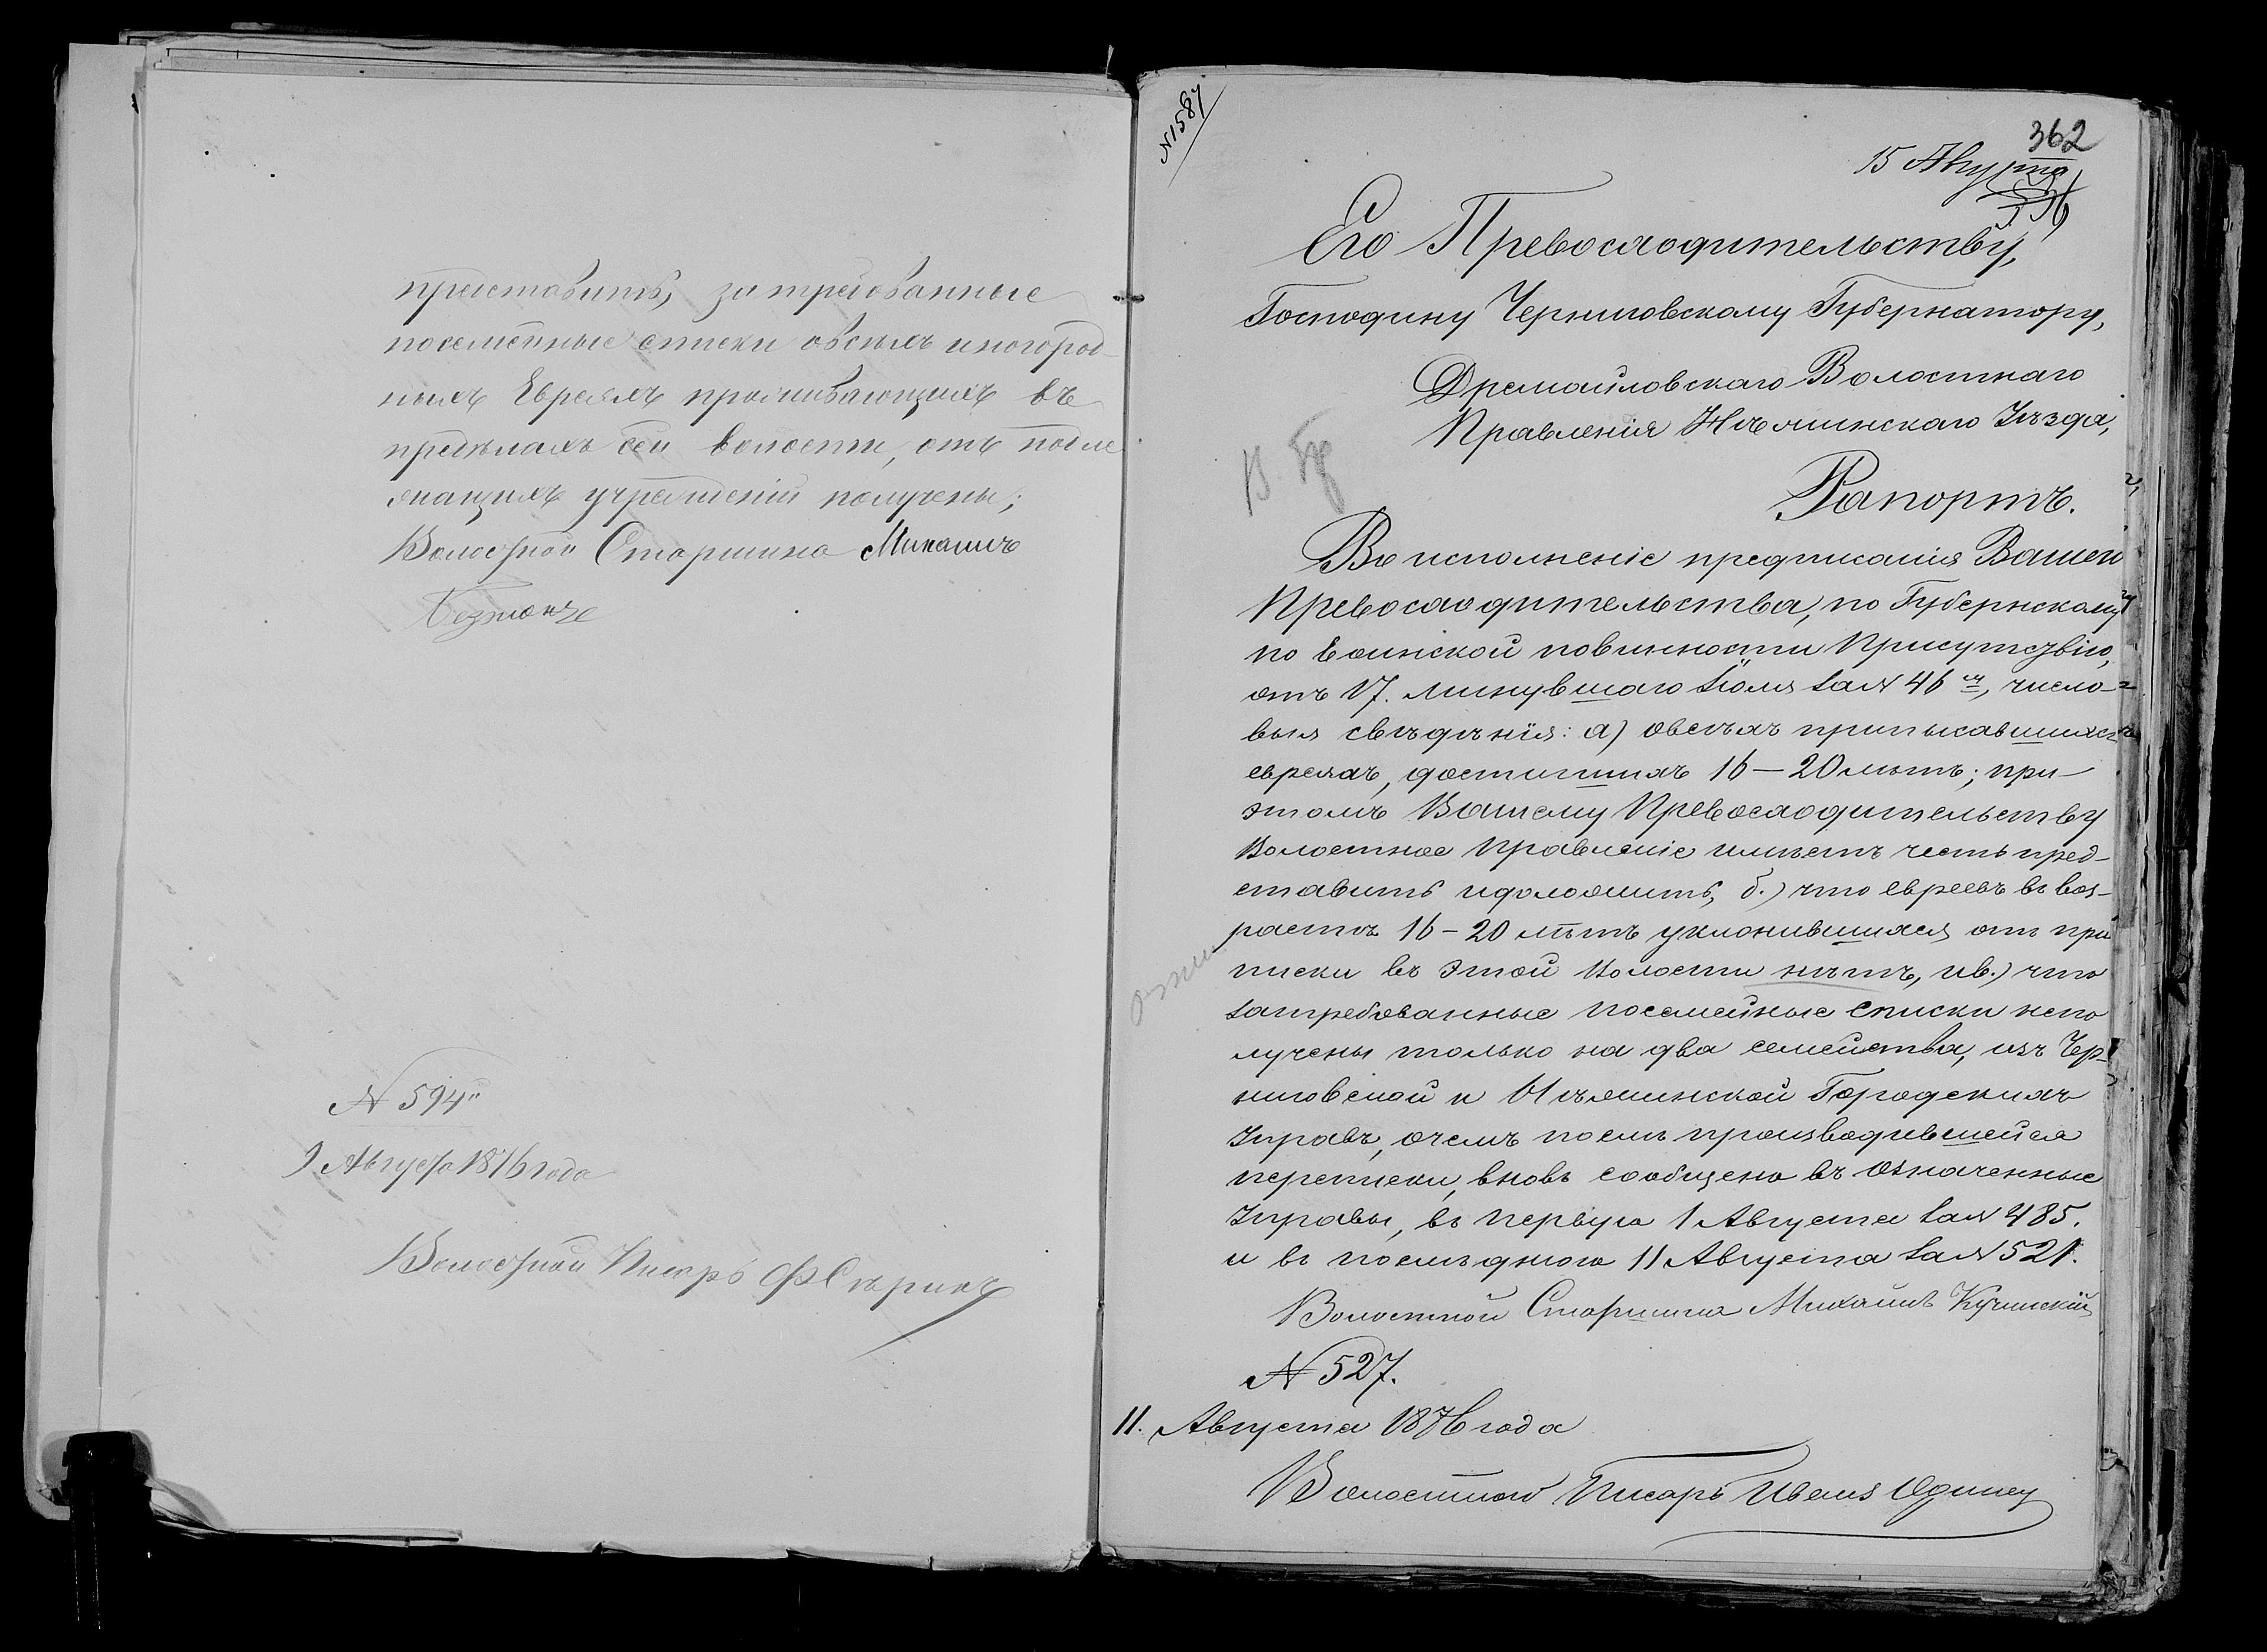 представить, затребованные
посемейные списки о всѣхъ иногород-
ныхъ Евреяхъ проживающихъ въ
предѣлахъ сей волости, отъ подле
жащихъ учрежденій получены;
Волостной Старшина
№ 594
9 Августа 1876 года
Волостной Писарь
№ 1587
362
15 Августа
Его Превосходительству,
Господину Черниговскому Губернатору,
Дремайловскаго Волостнаго
Правленія Нѣжинскаго Уѣзда,
Рапортъ.
Во исполненіе предписанія Вашего
Превосходительства, по Губернскому
по воинской повинности Присутствію,
отъ 17. минувшаго Іюля за № 46 м, число-
выя свѣдѣнія: а) о всѣхъ приписавшихся
евреяхъ, достигшихъ 16 – 20 лѣтъ; при
этомъ Вашему Превосходительству
Волостное Правленіе имѣетъ честь пред-
ставить и доложить, б.) что евреевъ въ воз-
растѣ 16 – 20 лѣтъ уклонившихся отъ при
писки въ этой волости нѣтъ, и в.) что
затребованные посемейные списки непо
лучены только на два семейства, изъ Чер-
ниговской и Нѣжинской Городскихъ
Управъ, о чемъ послѣ производившейся
переписки, вновь сообщено въ означенные
Управы, въ первую 1 Августа за № 485.
и въ послѣднюю 11 Августа за № 521.
Волостной Старшина Михаилъ Кучинскій
№ 527.
11. Августа 1876 года
Волостной Писарь Иванъ Одинец